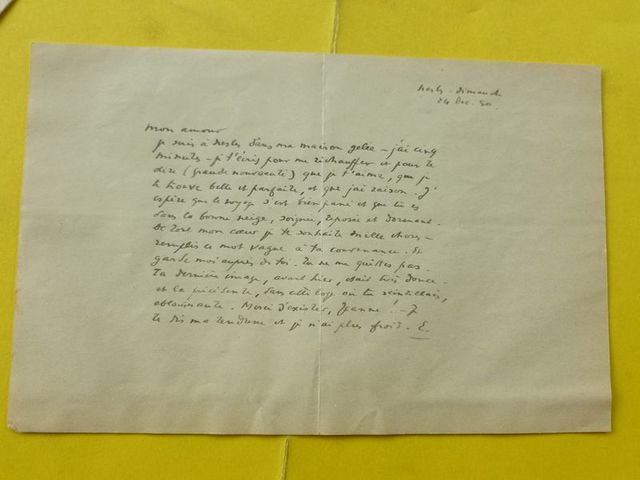 Nesles - Dimanche
24 Dec. 50.
Mon amour
je suis à Nesles dans ma maison gelée - j'ai cinq
minutes - je t'écris pour me réchauffer et pour te
dire (grande nouveauté) que je t'aime, que je
te trouve belle et parfaite, et que j'ai raison. J'
espère que le voyage s'est bien passé et que tu es
dans la bonne neige, soignée, reposée et dormant.
De tout mon cœur je te souhaite mille choses -
remplis ce mot vague à ta convenance. Et
garde moi auprès de toi. Tu ne me quittes pas.
Ta dernière image, avant hier, était très douce.
et la précédente, dans cette loge où tu scintillais,
éblouissante. Merci d'exister, Jeanne! - Je
te dis ma tendresse et je n'ai plus froid. E.